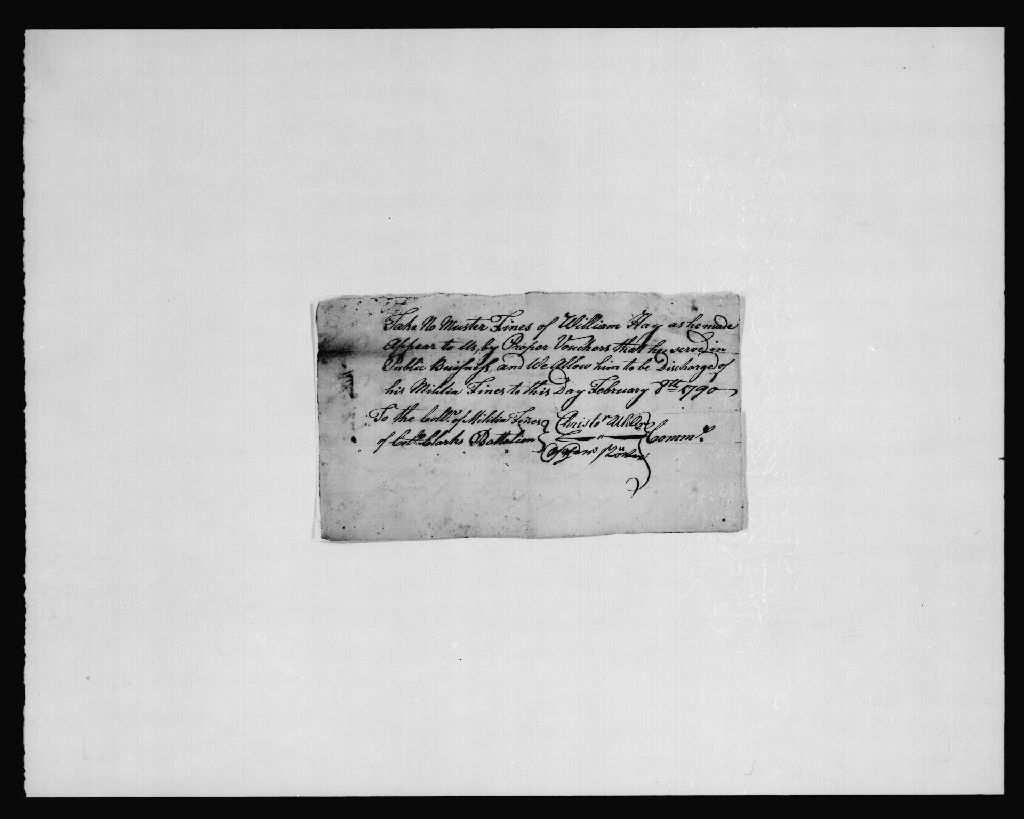 Take No Muster Fines of William Hay as he made
Appear to Us, by Proper Vouchers that he served in
Public Buisness, and We Allow him to be Discharged of
his Militia Fines to this Day February 8th 1790
To the Collr. of Militia Fines Christor.
of Colo. Clarks Battalion Commrs.